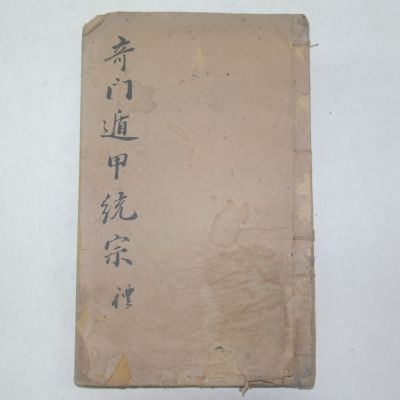 奇门遁甲統宗 禮